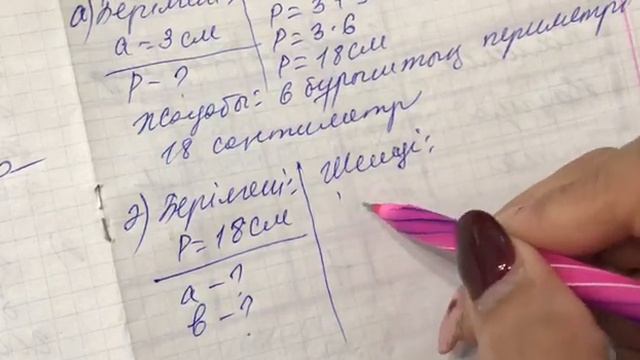 а) Берілгені:
a = 3 см
P - ?
P = 3 · 6
P = 18 см
Жауабы: 6 бұрыштың периметрі
18 сантиметр
ә) Берілгені:
P = 18 см
a - ?
b - ?
Шешуі: